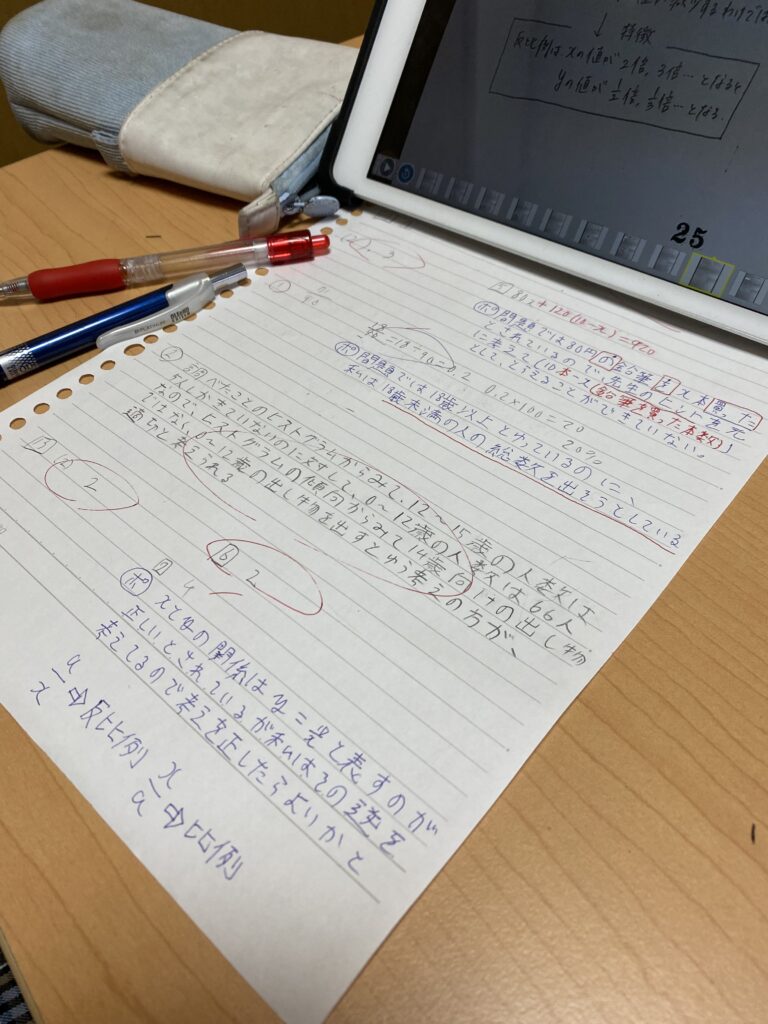 特徴
反比例はxの値が2倍, 3倍…となると
yの値が1/2倍, 1/3倍…となる.
25
80x+120(10-x)=920
ポ 問題では80円の鉛筆をx本買った
とされているので、先生のヒントを元
に考えて「10本-x(鉛筆を買った本数)」
として、とらえることができていない。
18/90=18÷90=0.2 0.2×100=20
20%
ポ 問題では18歳以上とゆっているのに、
私は18歳未満の人の総数を出そうとしている
②
調べたことのヒストグラムからみて、12~15歳の人数は
5人しかきていないのに対して、0~12歳の人数は66人
なので、ヒストグラムの傾向からみて14歳向けの出し物
ではなく、0~12歳の出し物を出すとゆう考えの方が、
適切と考えられる
2
6 2
7 4
ポ xとyの関係はy=a/xと表すのが
正しいとされているが私はその逆を
考えてるので考えを正したらよいかと
a/x⇨反比例 x/a⇨比例